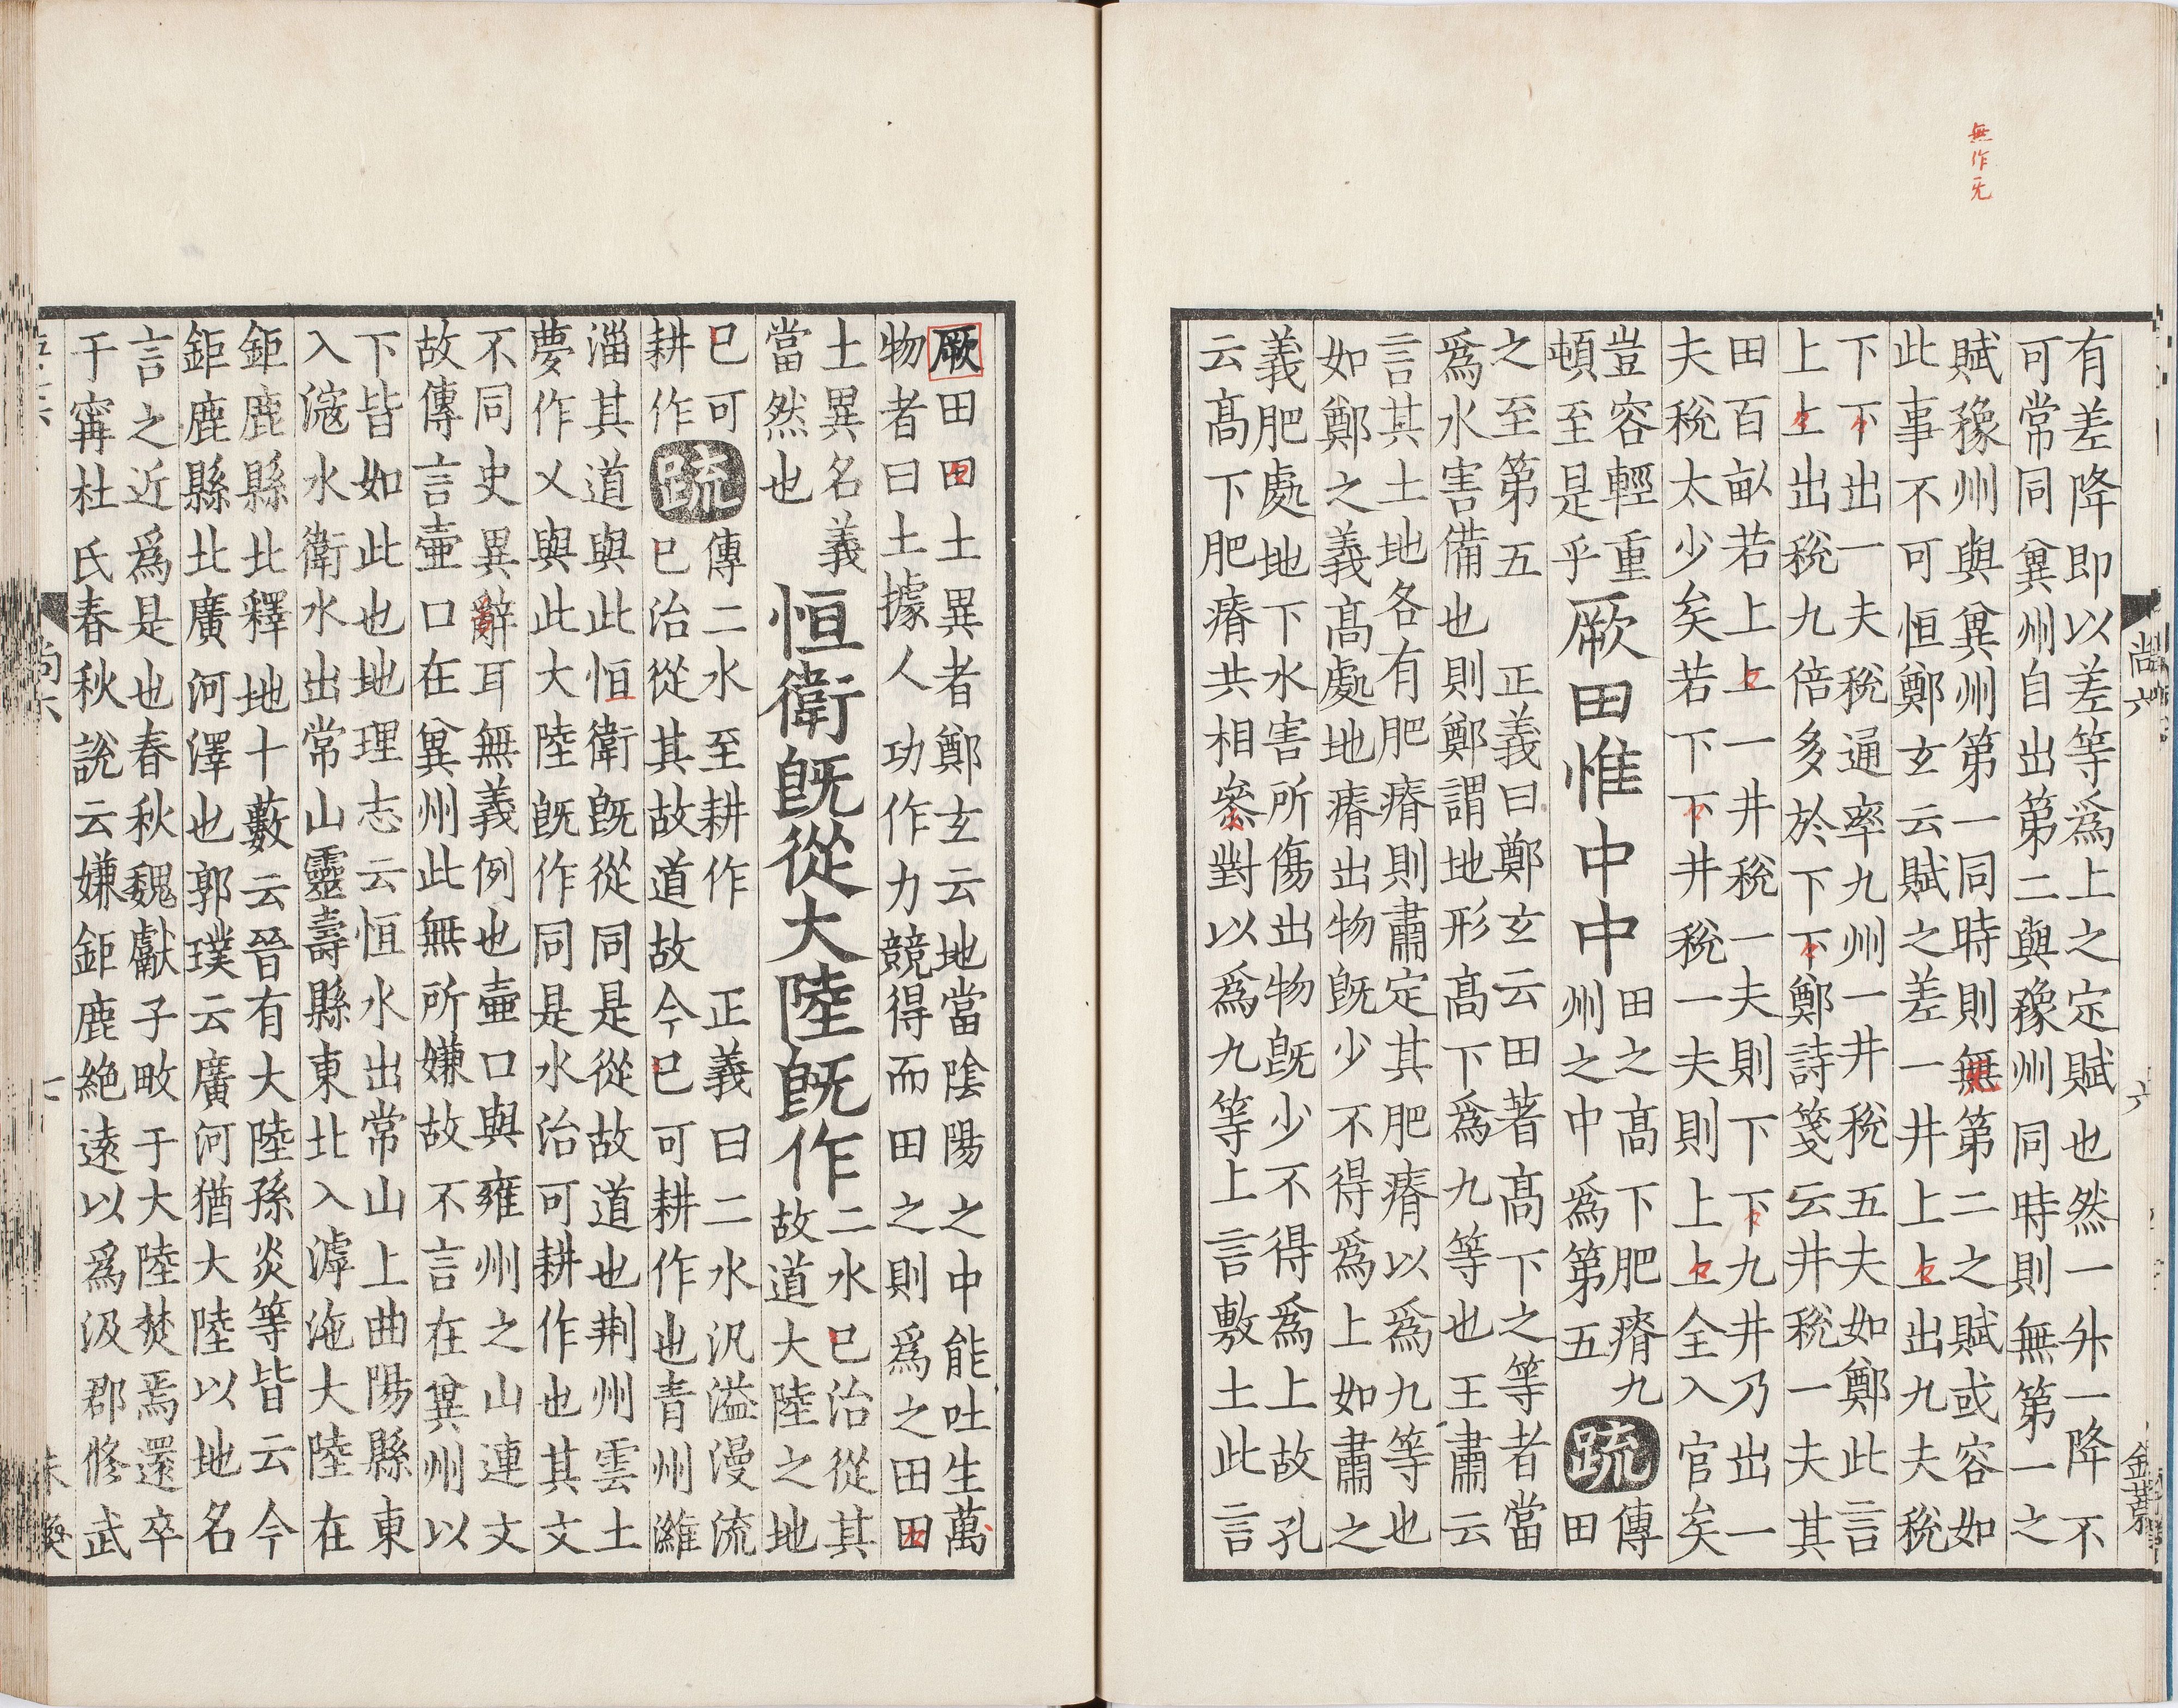 無作无
有差降即以差等爲上之定賦也然一升一降不
可常同兾州自出第二與豫州同時則無第一之
賦豫州與兾州第一同時則無第二之賦或容如
此事不可恒鄭玄云賦之差一井上上出九夫稅
下下出一夫稅通率九州一井稅五夫如鄭此言
上上出稅九倍多於下下鄭詩箋云井稅一夫其
田百畝若上上一井稅一夫則下下九井乃出一
夫稅太少矣若下下井稅一夫則上上全入官矣
豈容輕重
頓至是乎
厥田惟中中
田之高下肥瘠九
州之中爲第五
疏
傳
田
之至第五 正義曰鄭玄云田著高下之等者當
爲水害備也則鄭謂地形高下爲九等也王肅云
言其土地各有肥瘠則肅定其肥瘠以爲九等也
如鄭之義高處地瘠出物既少不得爲上如肅之
義肥處地下水害所傷出物既少不得爲上故孔
云高下肥瘠共相參對以爲九等上言敷土此言
尚六
六
厥田田土異者鄭玄云地當陰陽之中能吐生萬
物者曰土據人功作力競得而田之則爲之田田
土異名義
當然也
恒衛既從大陸既作
二水已治從其
故道大陸之地
已可
耕作
疏
傳二水至耕作 正義曰二水汎溢漫流
已治從其故道故今已可耕作也青州濰
淄其道與此恒衛既從同是從故道也荆州雲土
夢作乂與此大陸既作同是水治可耕作也其文
不同史異辭耳無義例也壷口與雍州之山連文
故傳言壷口在兾州此無所嫌故不言在兾州以
下皆如此也地理志云恒水出常山上曲陽縣東
入滱水衛水出常山靈壽縣東北入滹沲大陸在
鉅鹿縣北釋地十藪云晉有大陸孫炎等皆云今
鉅鹿縣北廣河澤也郭璞云廣河猶大陸以地名
言之近爲是也春秋魏獻子畋于大陸焚焉還卒
于甯杜氏春秋說云嫌鉅鹿絶遠以爲汲郡修武